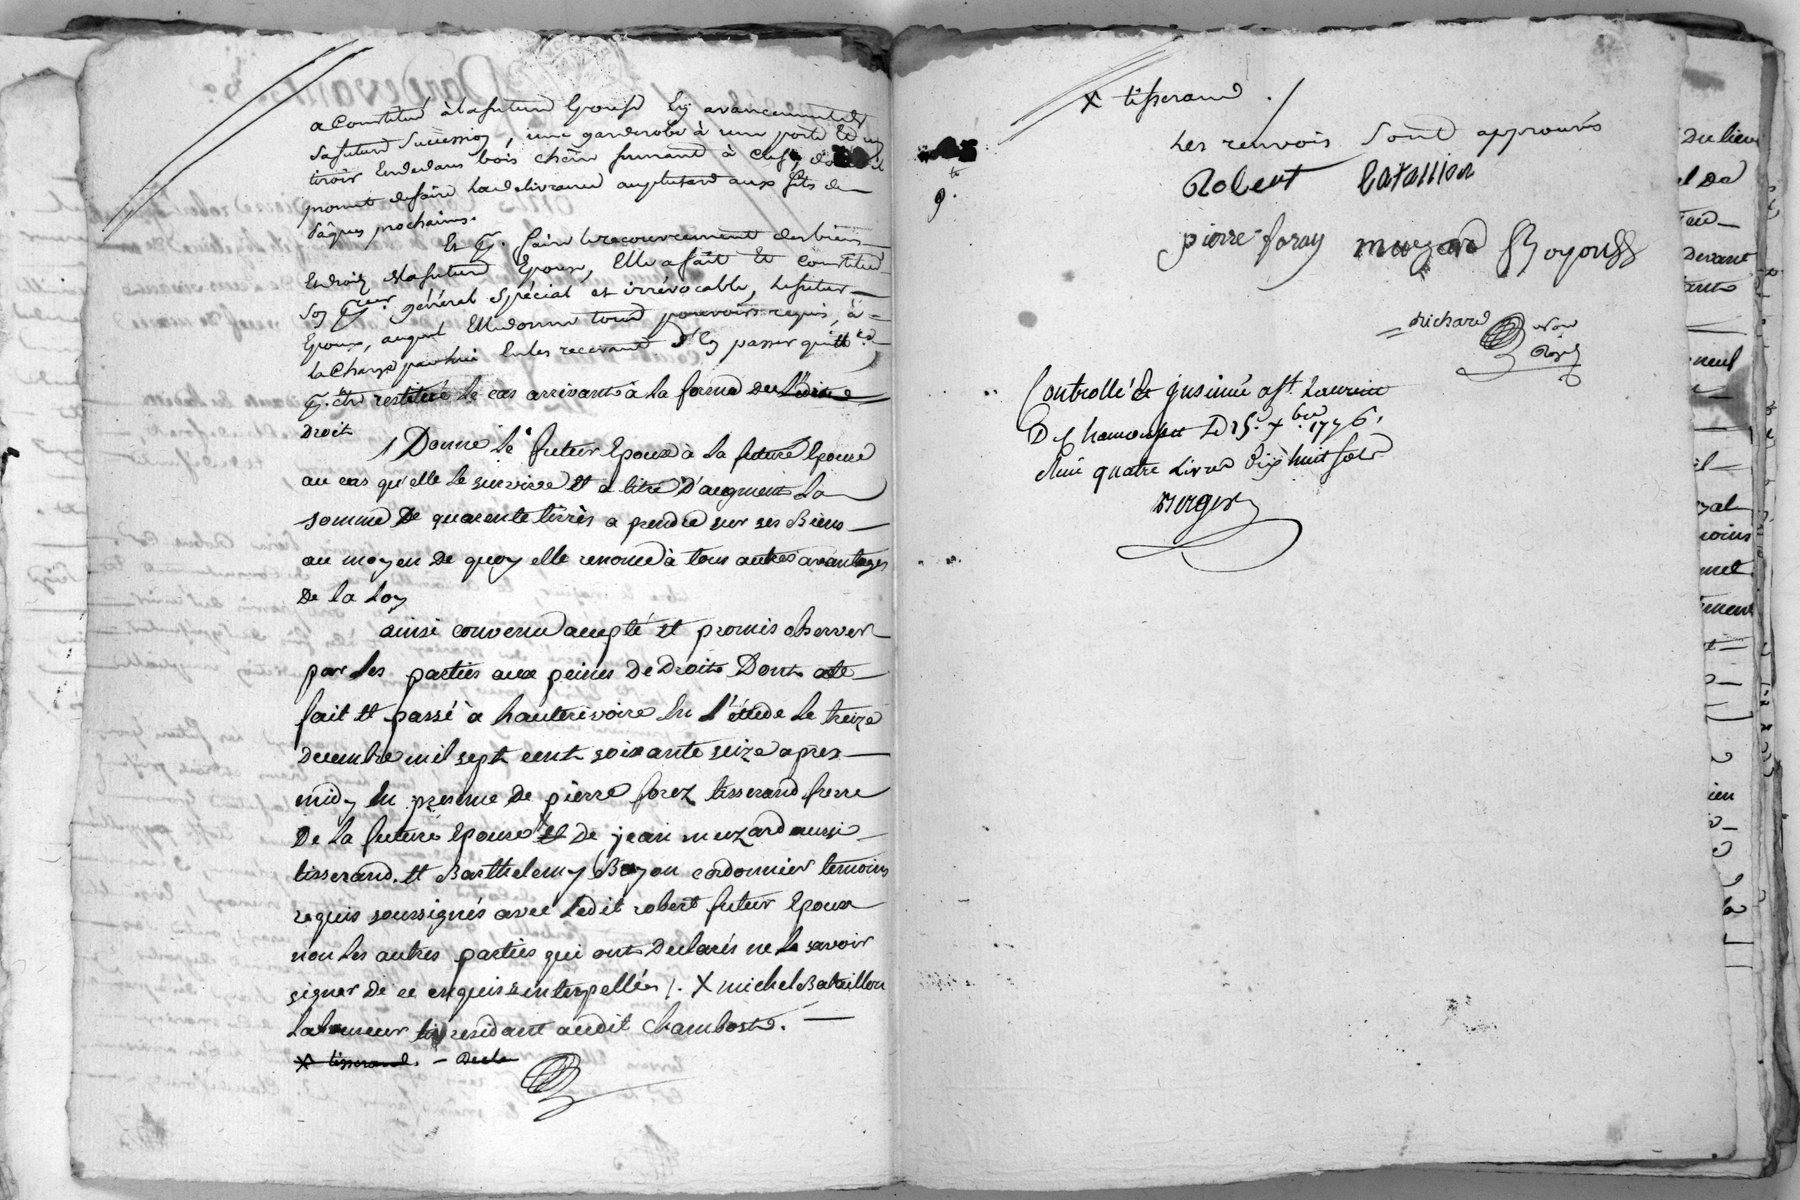 a Constitué à la future Epouse En avancement de
sa future Succession, une garderobe à une porte Et un
tiroir Endedans bois chêne fermant à clef,
promet de faire la delivrance au plutard aux fêtes de
Pâques prochaines.
Et pr. faire le recouvrement des biens
Et droits de la future Epouse, Elle a fait Et constitué
son pr.eur général spécial et irrévocable, le futur
Epoux, auquel Elle donne tous pouvoirs requis, à
la charge par lui En les recevant d'En passer quitt.ce
pr. être restitué le cas arrivant à la forme du
Droit
Donne le futur Epoux à la future Epouse
au cas qu'elle le survive Et a titre D'augment La
somme De quarente livres a prendre sur ses Biens
au moyen De quoy elle renonce à tous autres avantages
De la Loy
ainsi convenu accepté Et promis observer
par les parties aux peines De Droit Dont acte
fait Et passé à hauterivoire En l'étude Le treize
Decembre mil sept cent soixante seize apres
midy En presence De pierre forez tisserand frere
De la future Epouse Et De jean muzard aussi
tisserand. Et Barthelemy Boyon cordonnier temoins
requis soussignés avec Ledit robert futur Epoux
non Les autres parties qui ont Declarés ne Le savoir
signer De ce enquis & interpellées /. X michel Bataillon
Laboureur residant audit Chambost.
X tisserand.
X tisserand ./
Les renvois Sont approuvés
Robert bataillon
pierre foray muzard B Boyon
Richard
No.re
Royal
9.te
Controllé & Insinué à St. Laurent
De Chamousset Le 25.e Xbre 1776.
Reçu quatre Livres Dix huit sols
Berger